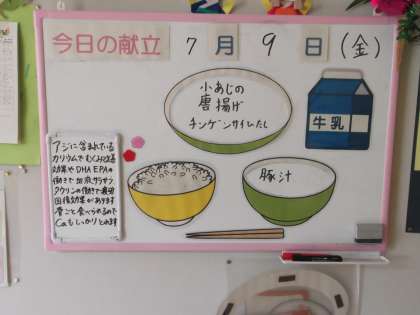 今日の献立 7月9日(金)
小あじの
唐揚げ
チンゲンサイひたし
牛乳
豚汁
アジに含まれている
カリウムでむくみ改善
効果やDHA EPAの
働きで血液サラサラ
タウリンの働きで疲労
回復効果があります
骨ごと食べられるので
Caもしっかりとれます